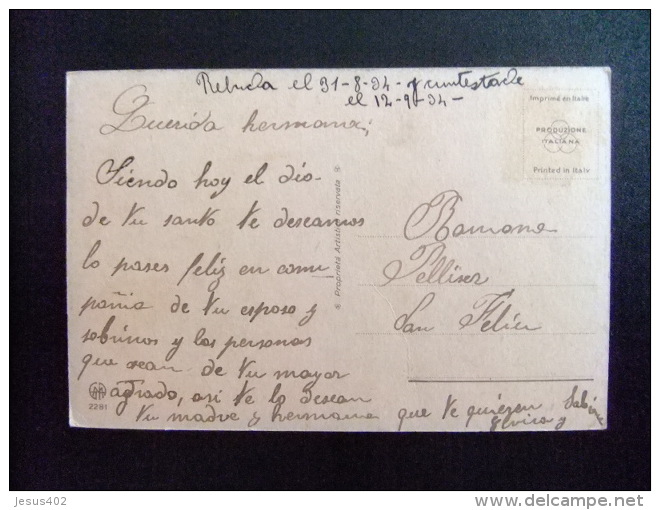 Rebuda el 31-8-34- y contestada
el 12-9-34-
Imprimé en Italie
PRODUZIONE
ITALIANA
Printed in Italy
Querida hermana;
Siendo hoy el dia
de tu santo te deseamos
lo pases feliz en com
pañia de tu esposo y
sobrinos y las personas
que sean de tu mayor
agrado, asi te lo desean
tu madre y hermana que te quieren
y
Proprietà Artistica riservata
Ramona
Pelliser
San Feliu
2281
Jesus402
delcampe.net